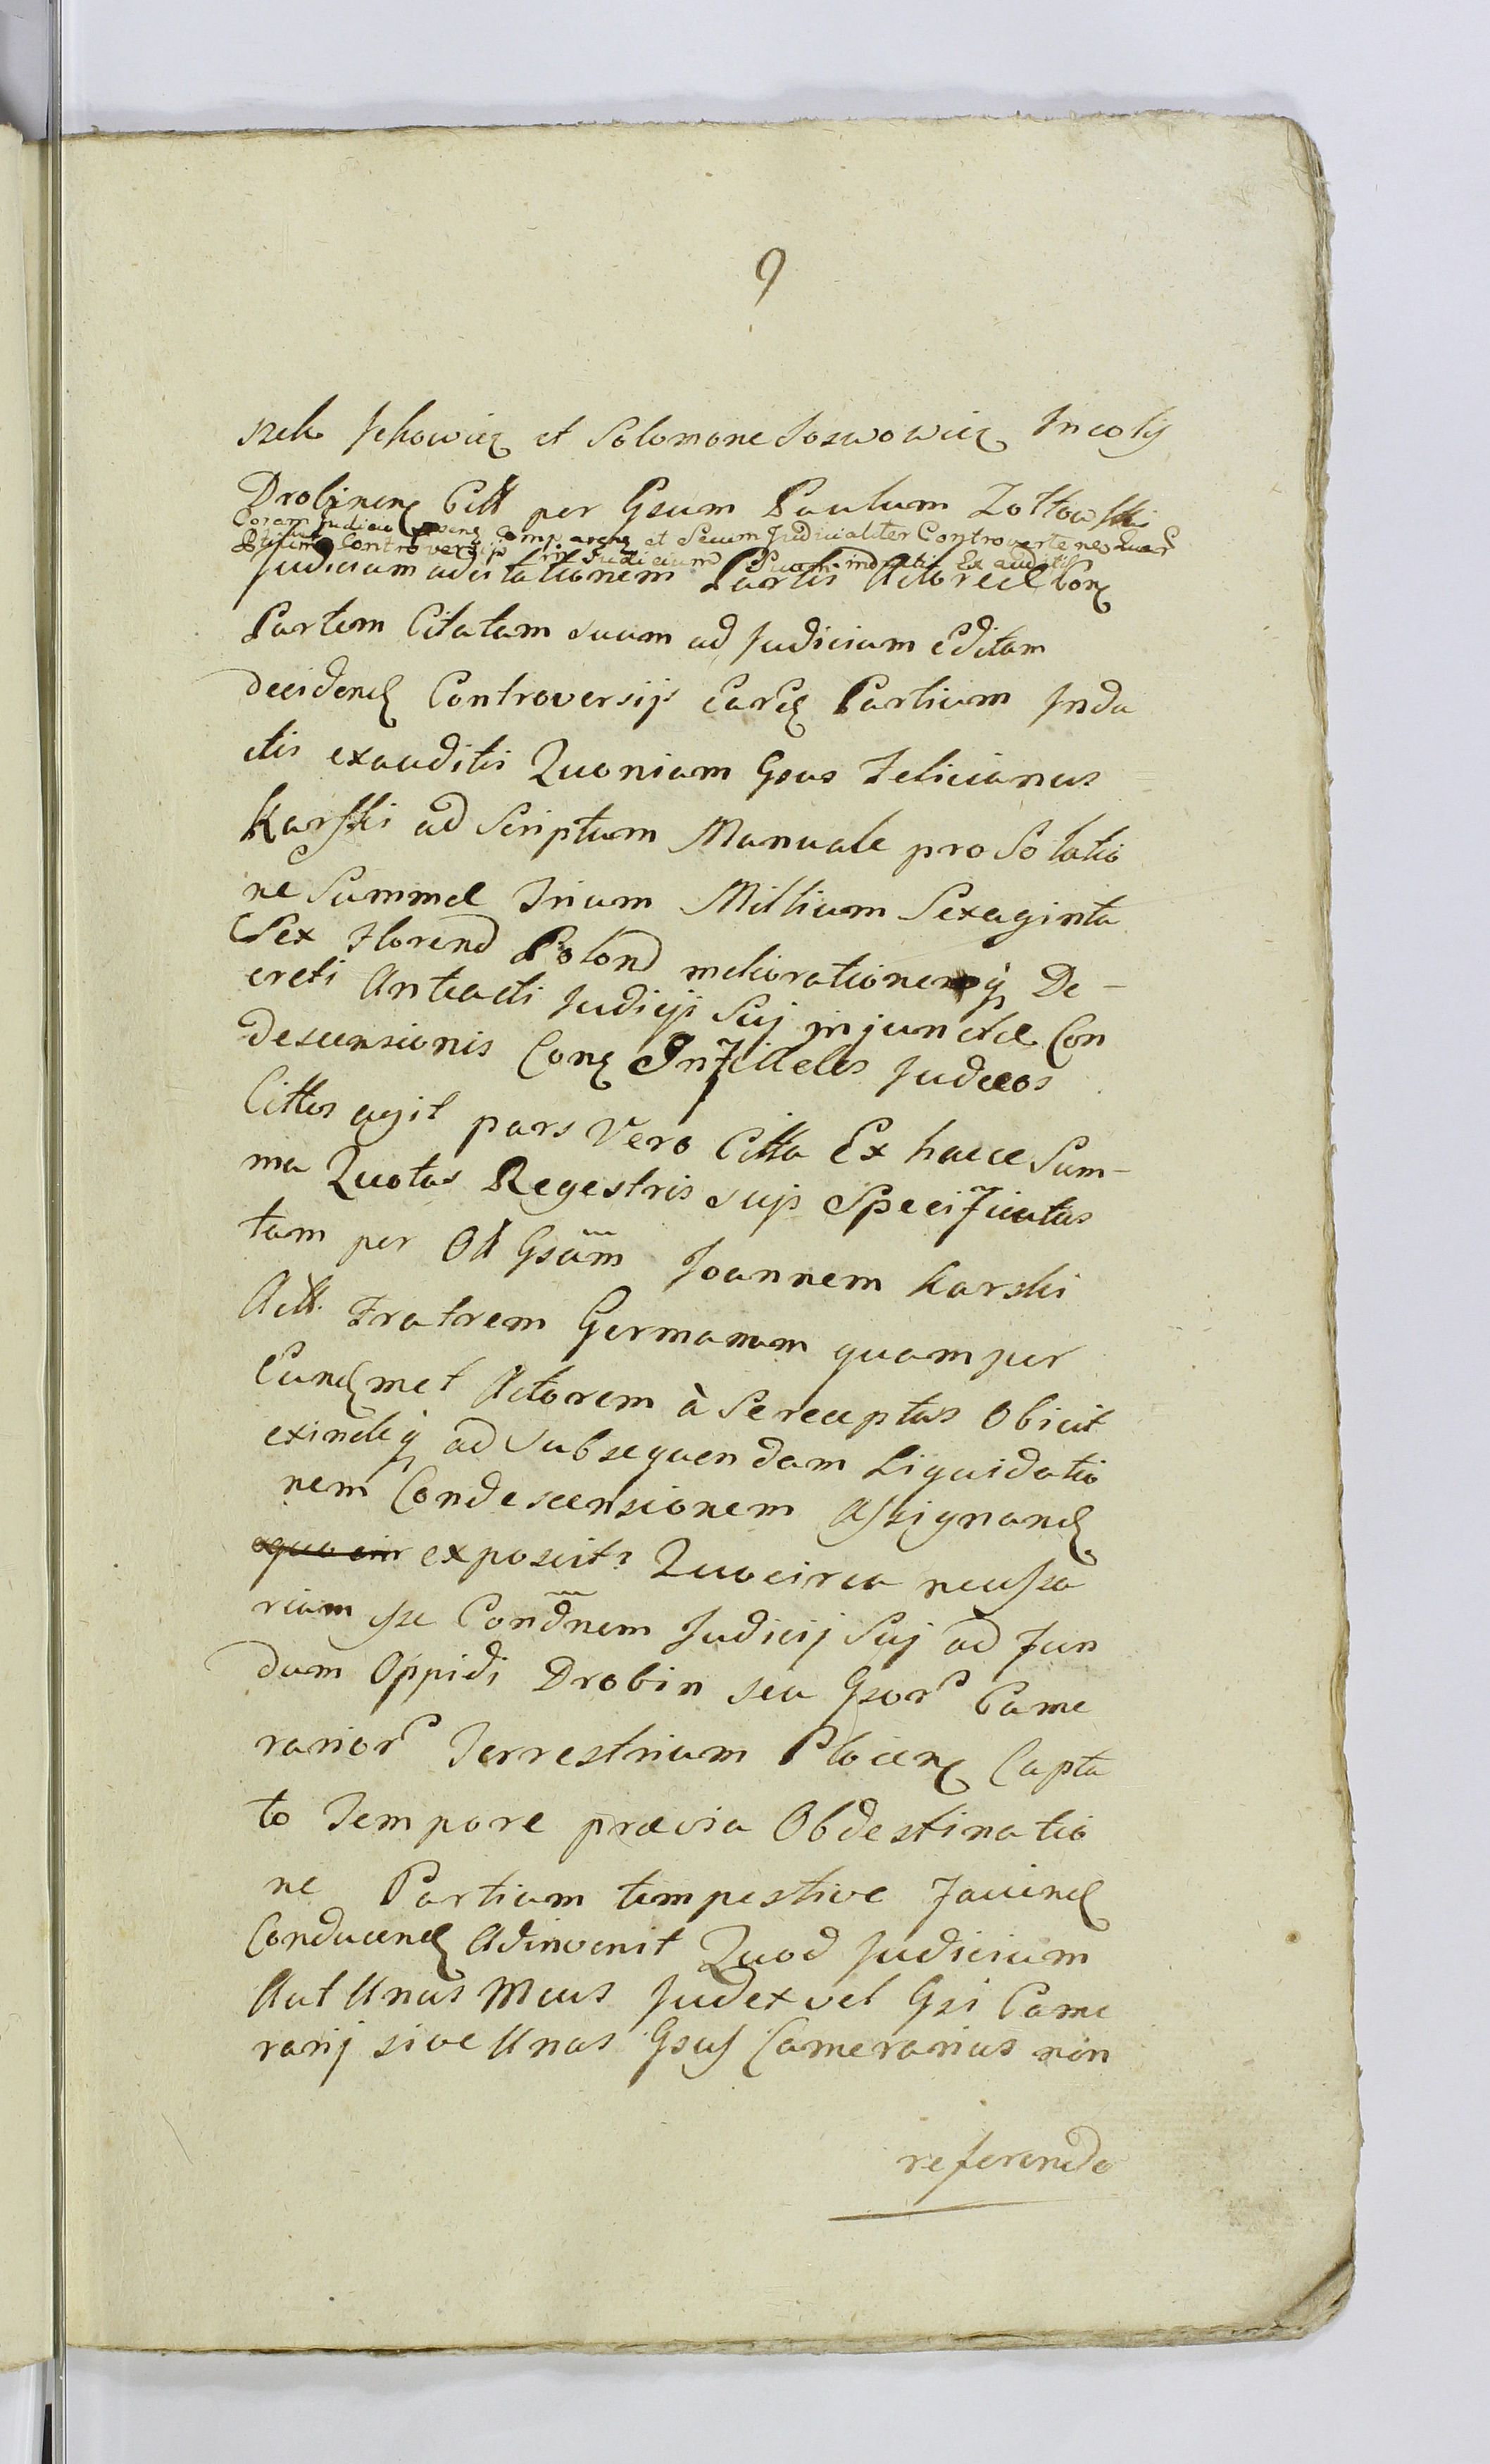 9
szek Jekowicz et Solomone Joswowicz Incolis
Drobinen Citt per Gsum Paulum Zołtowski
Coram Judicio comparen et Secum Judicialiter Controverten quar
Partium Controversijs in Judicium Suum inductis Ex auditis
Judicium ad citationem Partis Actoreae Con
Partem Citatam suum ad Judicium editam
decidend Controversijs earq Partium Indu
ctis exauditis Quoniam Gsus Felicianus
Karski ad Scriptum Manuale pro Solutio
ne Summae Trium Millium Sexaginta
Sex Floren Polon meliorationemq De-
creti Anteacti Judicij Sui injunctae Con
descensionis Con Infideles Judaeos
Cittos agit pars Vero Citta Ex haece Sum-
ma Quotas Regestris suis Specificatas
tam per Olt Gsum Joannem Karski
Actt. Fratrem Germanum quam per
Eundmet Actorem à Se receptas Obicit
exindeq ad Subsequendam Liquidatio
nem Condescensionem Assignand
exposcit: Quocirca necessa
rium esse Condnem Judicij Sui ad Fun
dum Oppidi Drobin seu Gsor Came
rarior Terrestrium Plocen Capta
to Tempore praevia Obdestinatio
ne Partium tempestive faciend
Conducend Adinvenit Quod Judicium
Aut Unus Mcus Judex vel Gsi Came
rarij sive Unus Gsus Camerarius non
referendo